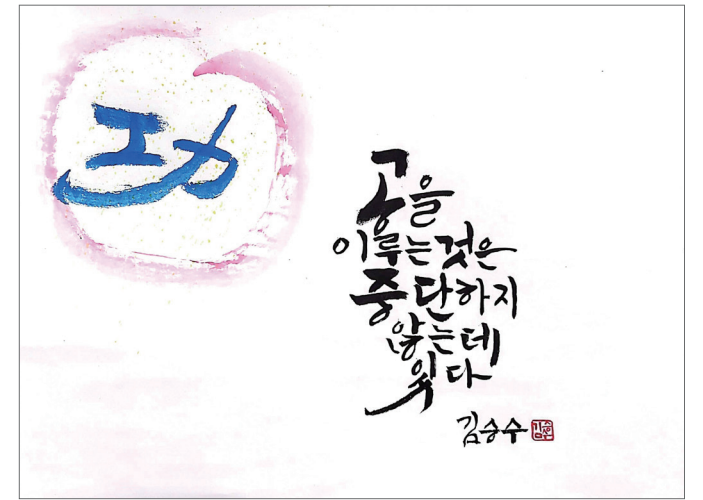 功
공을
이루는것은
중단하지
않는데
있다
김승수